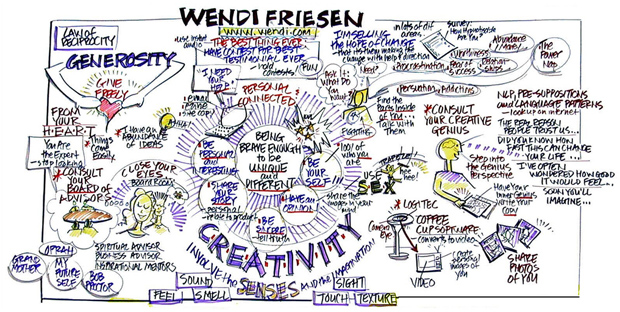 WENDI FRIESEN
www.wendi.com
LAW OF
RECIPROCITY
GENEROSITY
GIVE
FREELY
FROM
YOUR
H.E.A.R.T.
You Are
the Expert
stop looking
*Things
come
Easily
*Have an
ABUNDANCE
of IDEAS
*CONSULT
YOUR
BOARD of
ADVISORS
CLOSE YOUR
EYES
Board Room
OPRAH
GRAND
MOTHER
MY
FUTURE
SELF
BOB
PROCTOR
SPIRITUAL ADVISOR
BUSINESS ADVISOR
INSPIRATIONAL MENTORS
THE BEST THING EVER:
HAVE CONTEST FOR BEST
TESTIMONIAL EVER
contests
FUN
"I NEED
YOUR
HELP"
PERSONAL
& CONNECTED
BEING
BRAVE ENOUGH
to be
UNIQUE
and
DIFFERENT
BE
PERSONAL
and
INTERESTING
*SHARE
YOUR
STORY
BE
SINCERE
tell truth
HAVE AN
OPINION
BE
YOUR
SELF!!
100% of
who you
are
CREATIVITY
INVOLVE the SENSES AND the IMAGINATION
SOUND
SIGHT
FEEL
SMELL
TOUCH
TEXTURE
I'M SELLING
THE HOPE OF CHANGE
change with help & direction
in lots of dif.
areas
survey:
Abundance
/ More!
The
Power
Now
Procrastination
Fear of
success
Need?
Ask it:
What Do
You
Want?
FIGHTING
Persuasion
Find the
Parts inside
of You...
Talk with
Them
*CONSULT
YOUR CREATIVE
GENIUS
Step into
the Genius
Perspective
Have Your
Genius
Write
Your
Copy
USE
SEX
*LOGITEC
COFFEE
CUP SOFTWARE
converts to video
camera
Eye
VIDEO
create
personal
images of
you
SHARE
PHOTOS
OF YOU
NLP, PRE-SUPPOSITIONS
and LANGUAGE PATTERNS
look up on internet
THE REAL REASON
PEOPLE TRUST US...
DID YOU KNOW HOW
FAST THIS CAN CHANGE
YOUR LIFE...
I'VE OFTEN
WONDERED HOW GOOD
IT WOULD FEEL...
SOON YOU'LL
IMAGINE...